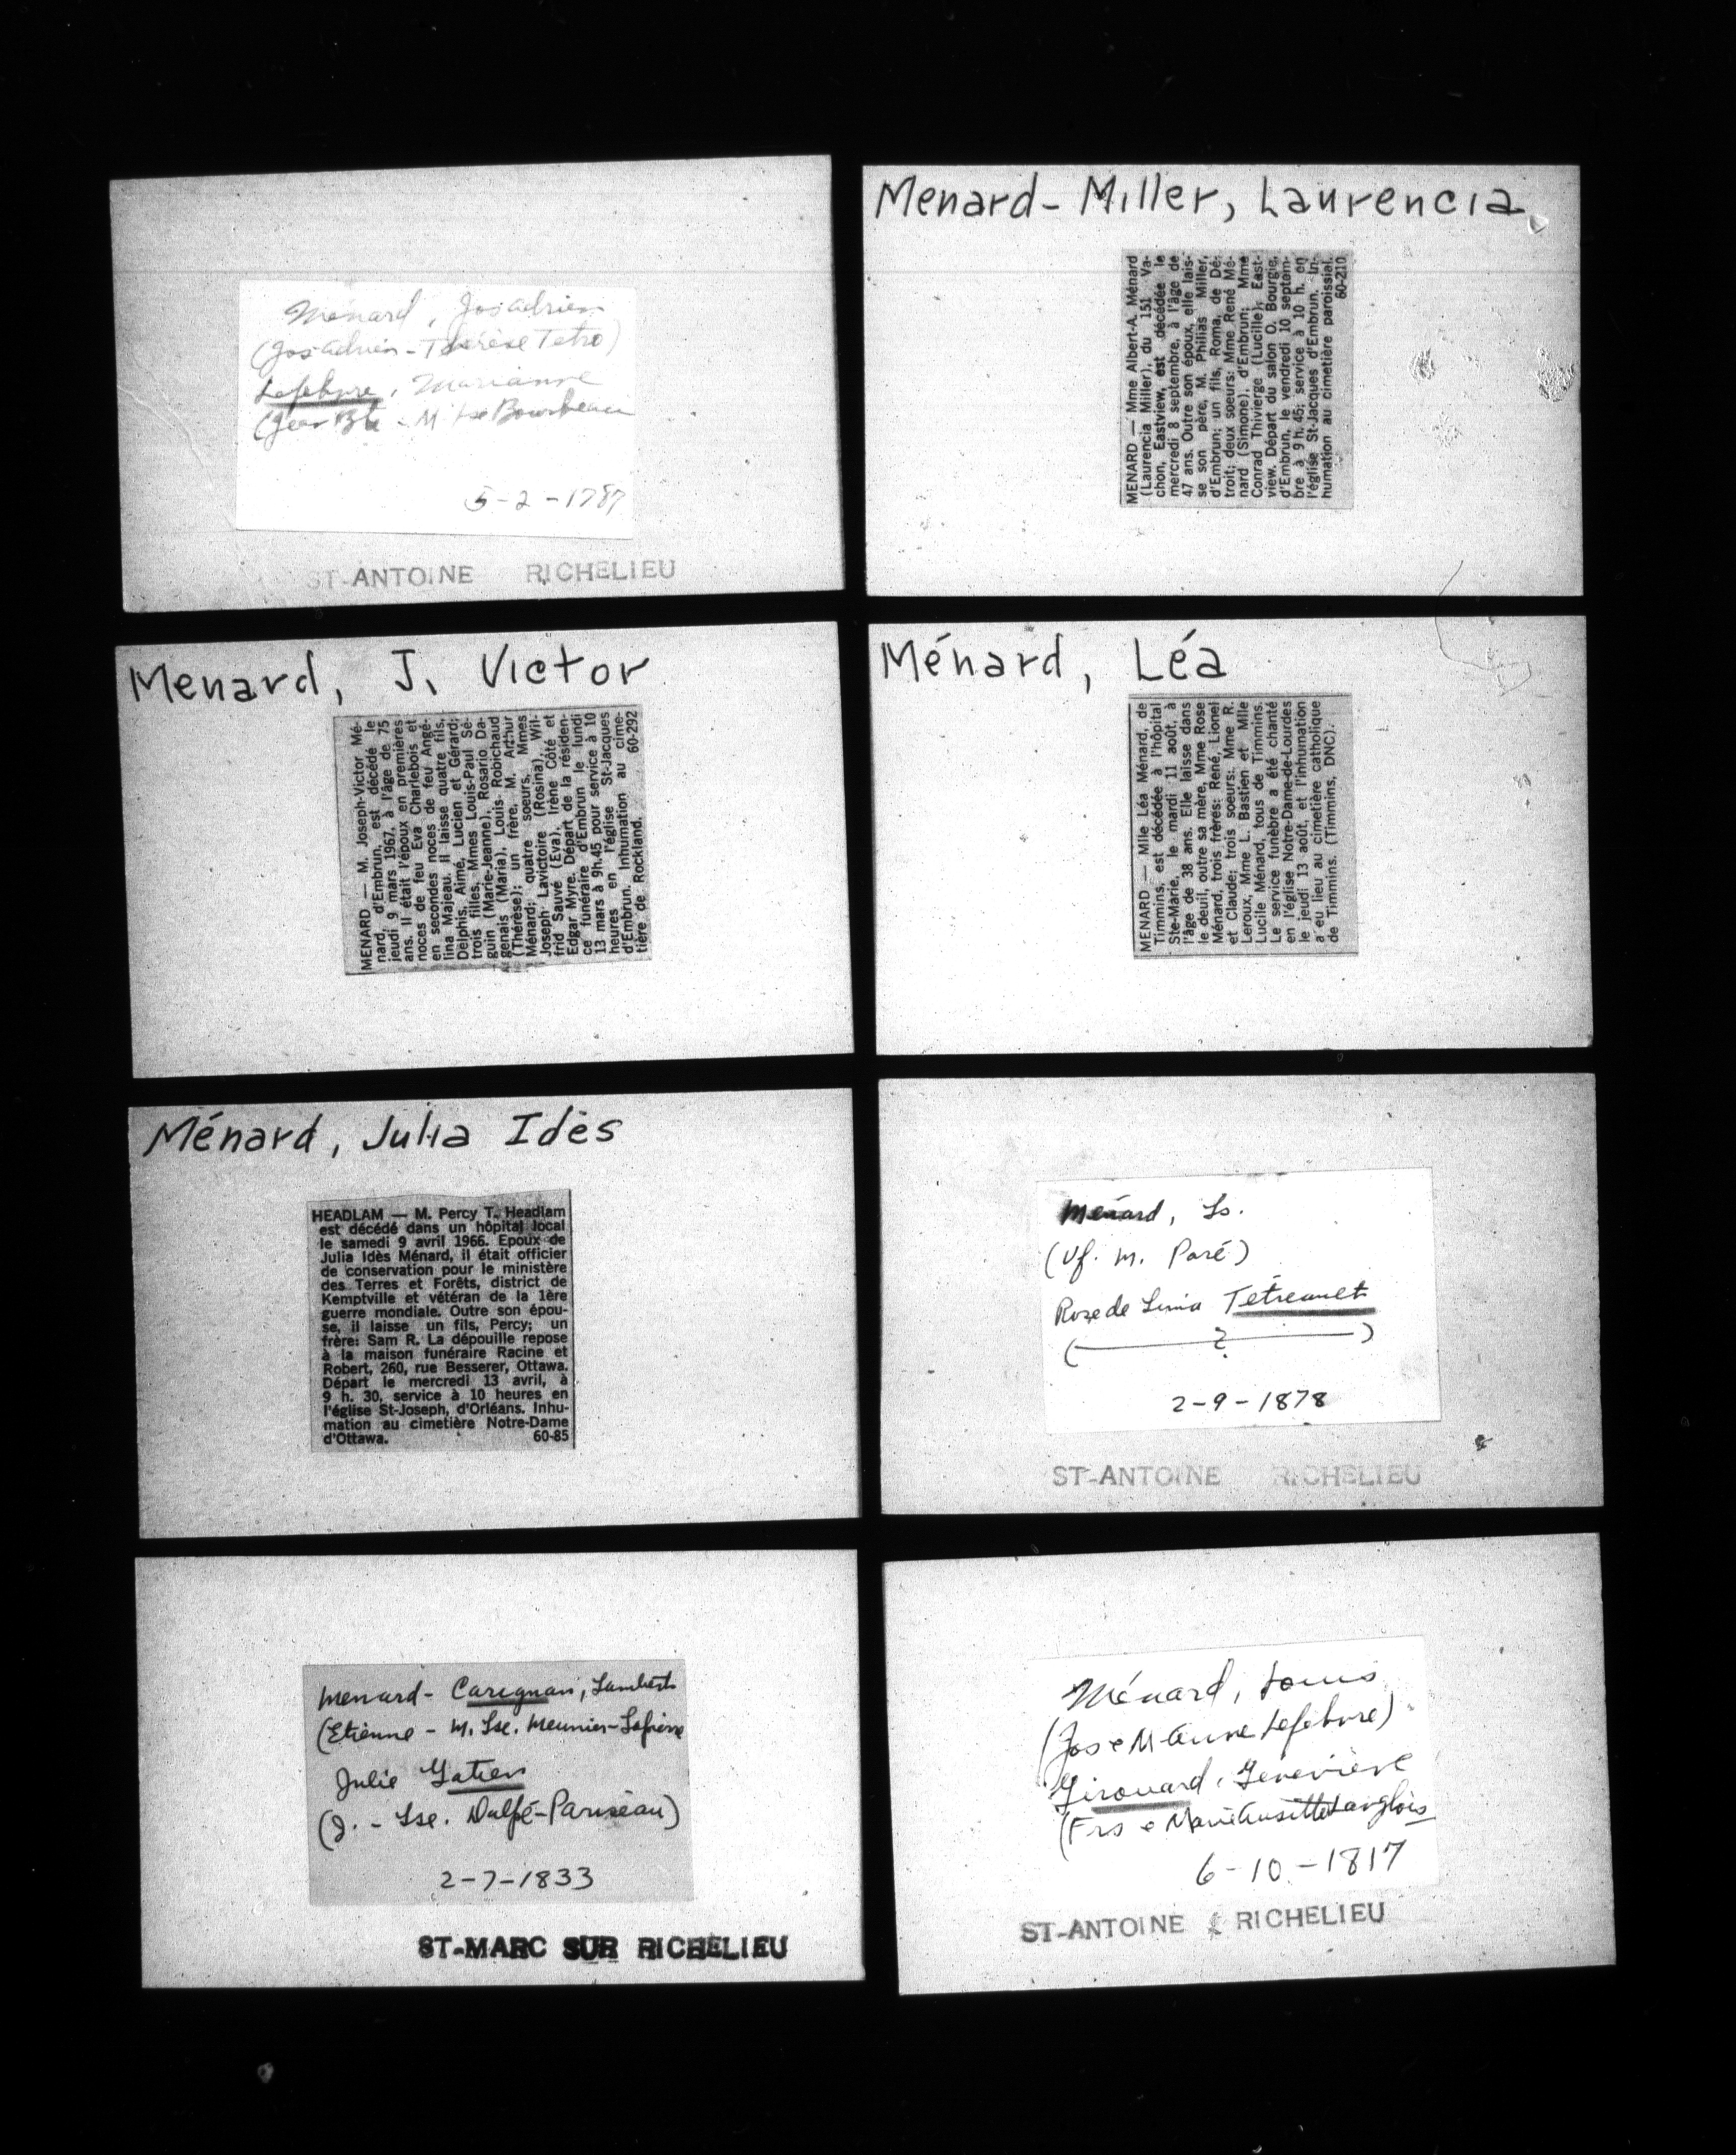 Ménard, Jos adrien
(Jos adrien - Thérèse Tetro)
Lefebvre, Marianne
(Jean Bte - M. Lse Bourbeau
5-2-1787
ST-ANTOINE RICHELIEU
Menard-Miller, Laurencia
MENARD — Mme Albert-A. Ménard
(Laurencia Miller), du 151 Va-
chon, Eastview, est décédée le
mercredi 8 septembre, à l'âge de
47 ans. Outre son époux, elle lais-
se son père, M. Philias Miller,
d'Embrun; un fils, Roma, de Dé-
troit; deux soeurs: Mme René Mé-
nard (Simone), d'Embrun; Mme
Conrad Thivierge (Lucille), East-
view. Départ du salon O. Bourgie,
d'Embrun, le vendredi 10 septem-
bre à 9 h. 45; service à 10 h. en
l'église St-Jacques d'Embrun. In-
humation au cimetière paroissial.
60-210
Menard, J. Victor
MENARD — M. Joseph-Victor Mé-
nard, d'Embrun, est décédé le
jeudi 9 mars 1967, à l'âge de 75
ans. Il était l'époux en premières
noces de feu Eva Charlebois et
en secondes noces de feu Angé-
lina Majeau. Il laisse quatre fils,
Delphis, Aimé, Lucien et Gérard;
trois filles, Mmes Louis-Paul Sé-
guin (Marie-Jeanne), Rosario Da-
genais (Maria), Louis Robichaud
(Thérèse); un frère, M. Arthur
Ménard; quatre soeurs, Mmes
Joseph Lavictoire (Rosina), Wil-
frid Sauvé (Eva), Irène Côté et
Edgar Myre. Départ de la résiden-
ce funéraire d'Embrun le lundi
13 mars à 9h.45 pour service à 10
heures en l'église St-Jacques
d'Embrun. Inhumation au cime-
tière de Rockland. 60-292
Ménard, Léa
MENARD — Mlle Léa Ménard, de
Timmins, est décédée à l'hôpital
Ste-Marie, le mardi 11 août, à
l'âge de 38 ans. Elle laisse dans
le deuil, outre sa mère, Mme Rose
Ménard, trois frères: René, Lionel
et Claude; trois soeurs: Mme R.
Leroux, Mme L. Bastien et Mlle
Lucile Ménard, tous de Timmins.
Le service funèbre a été chanté
en l'église Notre-Dame-de-Lourdes
le jeudi 13 août et l'inhumation
a eu lieu au cimetière catholique
de Timmins. (Timmins, DNC).
Ménard, Julia Idès
HEADLAM — M. Percy T. Headlam
est décédé dans un hôpital local
le samedi 9 avril 1966. Epoux de
Julia Idès Ménard, il était officier
de conservation pour le ministère
des Terres et Forêts, district de
Kemptville et vétéran de la 1ère
guerre mondiale. Outre son épou-
se, il laisse un fils, Percy; un
frère: Sam R. La dépouille repose
à la maison funéraire Racine et
Robert, 260, rue Besserer, Ottawa.
Départ le mercredi 13 avril, à
9 h. 30, service à 10 heures en
l'église St-Joseph, d'Orléans. Inhu-
mation au cimetière Notre-Dame
d'Ottawa. 60-85
Ménard, Ls.
(Vf. M. Paré)
Rose de Lima Tétreault
( ? )
2-9-1878
ST-ANTOINE RICHELIEU
Menard-Carignan, Lambert
(Etienne - M. Lse. Meunier-Lapierre
Julie Gatien
(J. - Lse. Dalpé-Pariseau)
2-7-1833
ST-MARC SUR RICHELIEU
Ménard, Louis
(Jos e M-Anne Lefebvre)
Girouard, Geneviève
(Frs e Marie Langlois
6-10-1817
ST-ANTOINE RICHELIEU